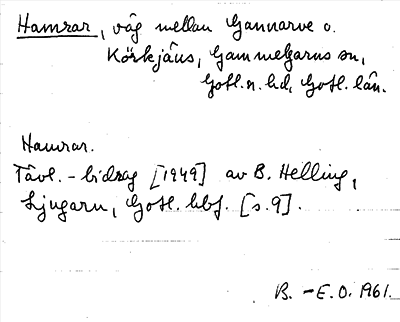 Hamrar, väg mellan Gannarve o.
Körkjäus, Gammelgarns sn,
Gotl. n. hd, Gotl. län.
Hamrar.
Tävl.-bidrag [1949] av B. Helling,
Ljugarn, Gotl. hbf. [s. 9].
B.-E.O. 1961.